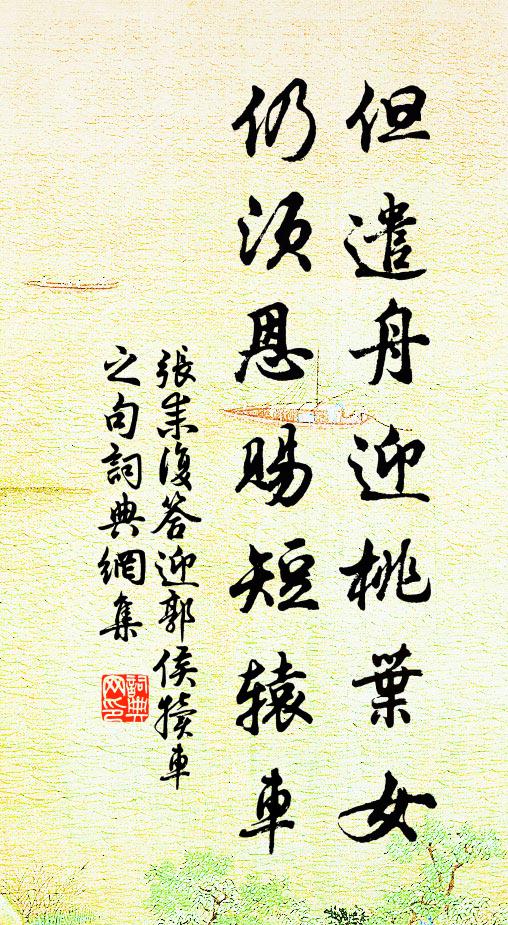 但遣舟迎桃葉女
仍须恩賜短辕車
張耒復答迎郭侯犢車
之句詞典網集
詞典
网印